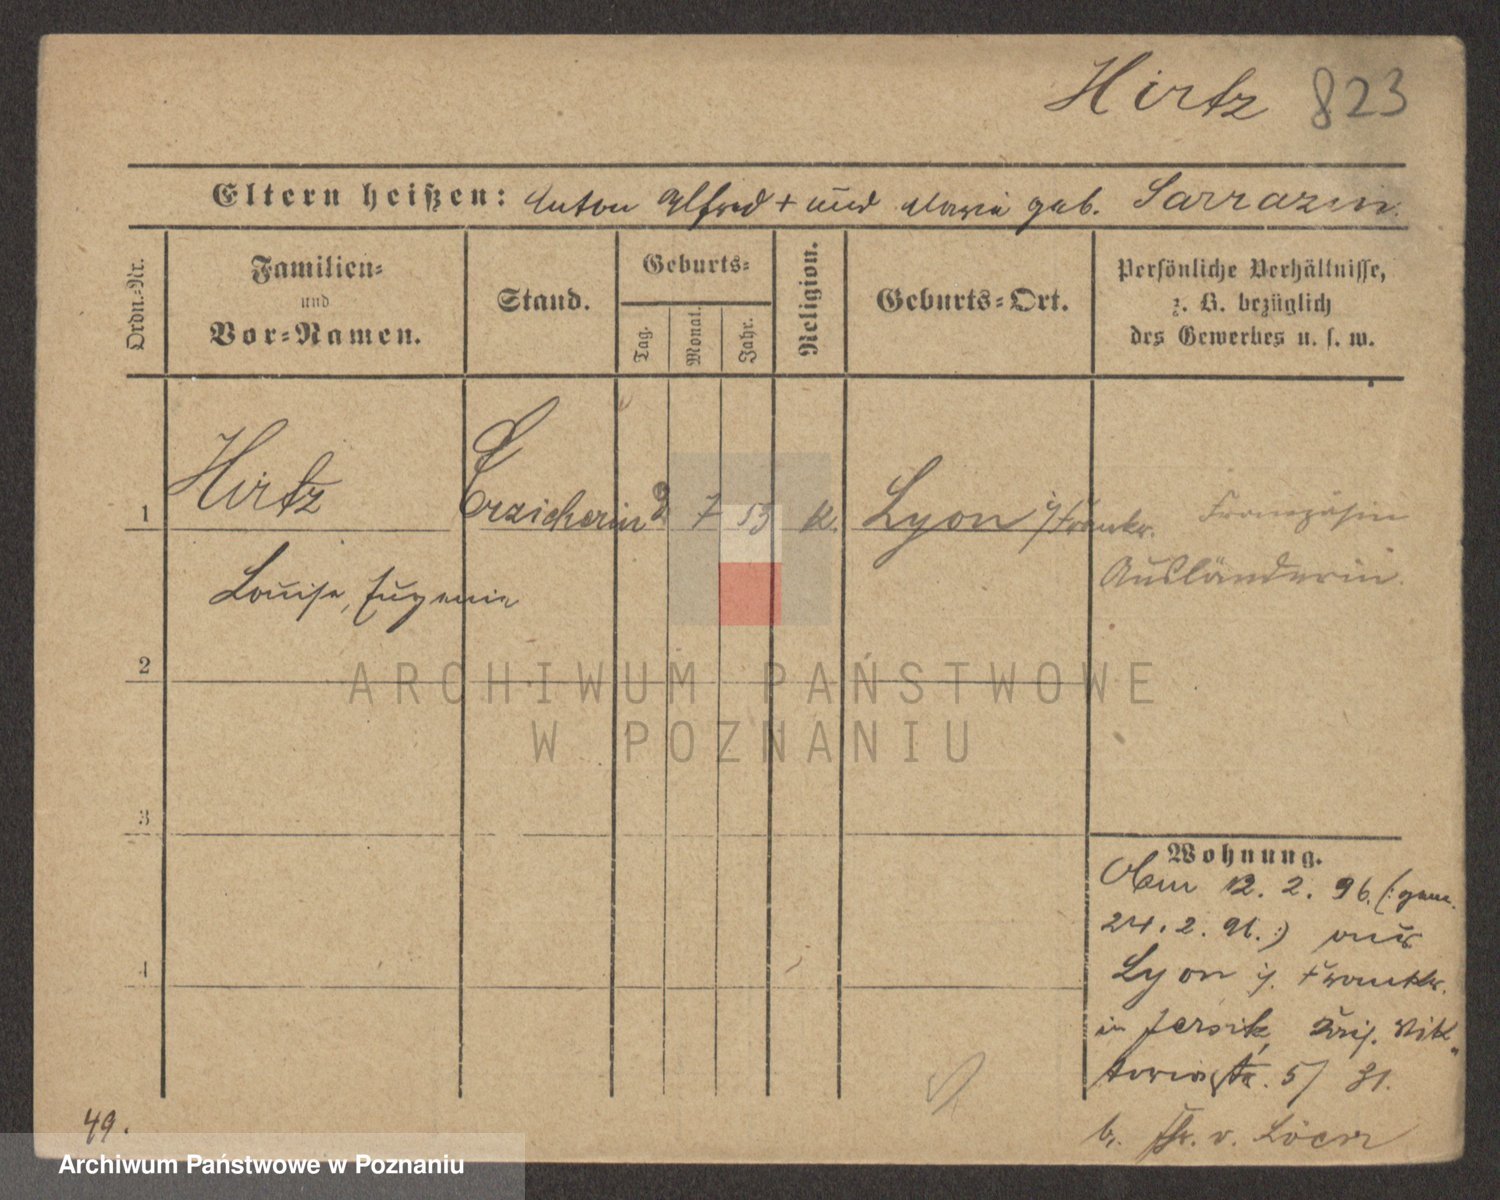 Hirtz 823
Eltern heißen: Anton Alfred + und Maria geb. Sarrazin.
Ordn.-Nr.
Familien-
und
Vor-Namen.
Stand.
Geburts-
Tag.
Monat.
Jahr.
Religion.
Geburts-Ort.
Persönliche Verhältnisse,
z. B. bezüglich
des Gewerbes u. s. w.
1 Hirtz Erzieherin 2 7 53 k. Lyon i/Frankr. Französin
Ausländerin.
Louise, Eugenie
2
ARCHIWUM PAŃSTWOWE
W POZNANIU
3
Wohnung.
Am 12. 2. 96. (: gem.
24. 2. 96. :) aus
4
Lyon i. Frankr.
in Jersitz, Vik-
toriastr. 5/ 31.
b. Fr. v.
49.
Archiwum Państwowe w Poznaniu